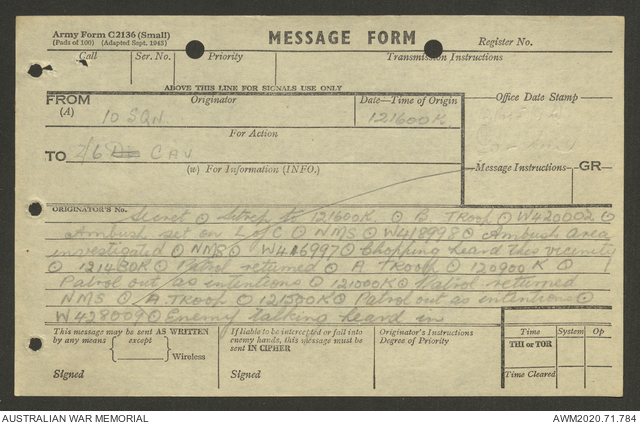 Army Form C2136 (Small)
(Pads of 100) (Adapted Sept. 1943)
MESSAGE FORM
Register No.
Call
Ser. No.
Priority
Transmission Instructions
ABOVE THIS LINE FOR SIGNALS USE ONLY
FROM
(A)
Originator
10 SQN.
Date—Time of Origin
121600K
Office Date Stamp
For Action
TO
2/6 CAV
(w) For Information (INFO.)
Message Instructions
GR
ORIGINATOR'S No.
Secret ⊙ 121600K ⊙ B Troop ⊙ W420002 ⊙
Ambush set on L of C ⊙ NMS ⊙ W418998 ⊙ Ambush area
investigated ⊙ NMS ⊙ W416997 ⊙ Chopping heard this vicinity
⊙ 121430K ⊙ Patrol returned ⊙ A Troop ⊙ 120900K ⊙
Patrol out as intentions ⊙ 121000K ⊙ Patrol returned
NMS ⊙ A Troop ⊙ 121500K ⊙ Patrol out as intentions ⊙
W428009 ⊙ Enemy talking heard in
This message may be sent AS WRITTEN
by any means
except
Wireless
Signed
If liable to be intercepted or fall into
enemy hands, this message must be
sent IN CIPHER
Signed
Originator's Instructions
Degree of Priority
Time
System
Op
THI or TOR
Time Cleared
AUSTRALIAN WAR MEMORIAL
AWM2020.71.784